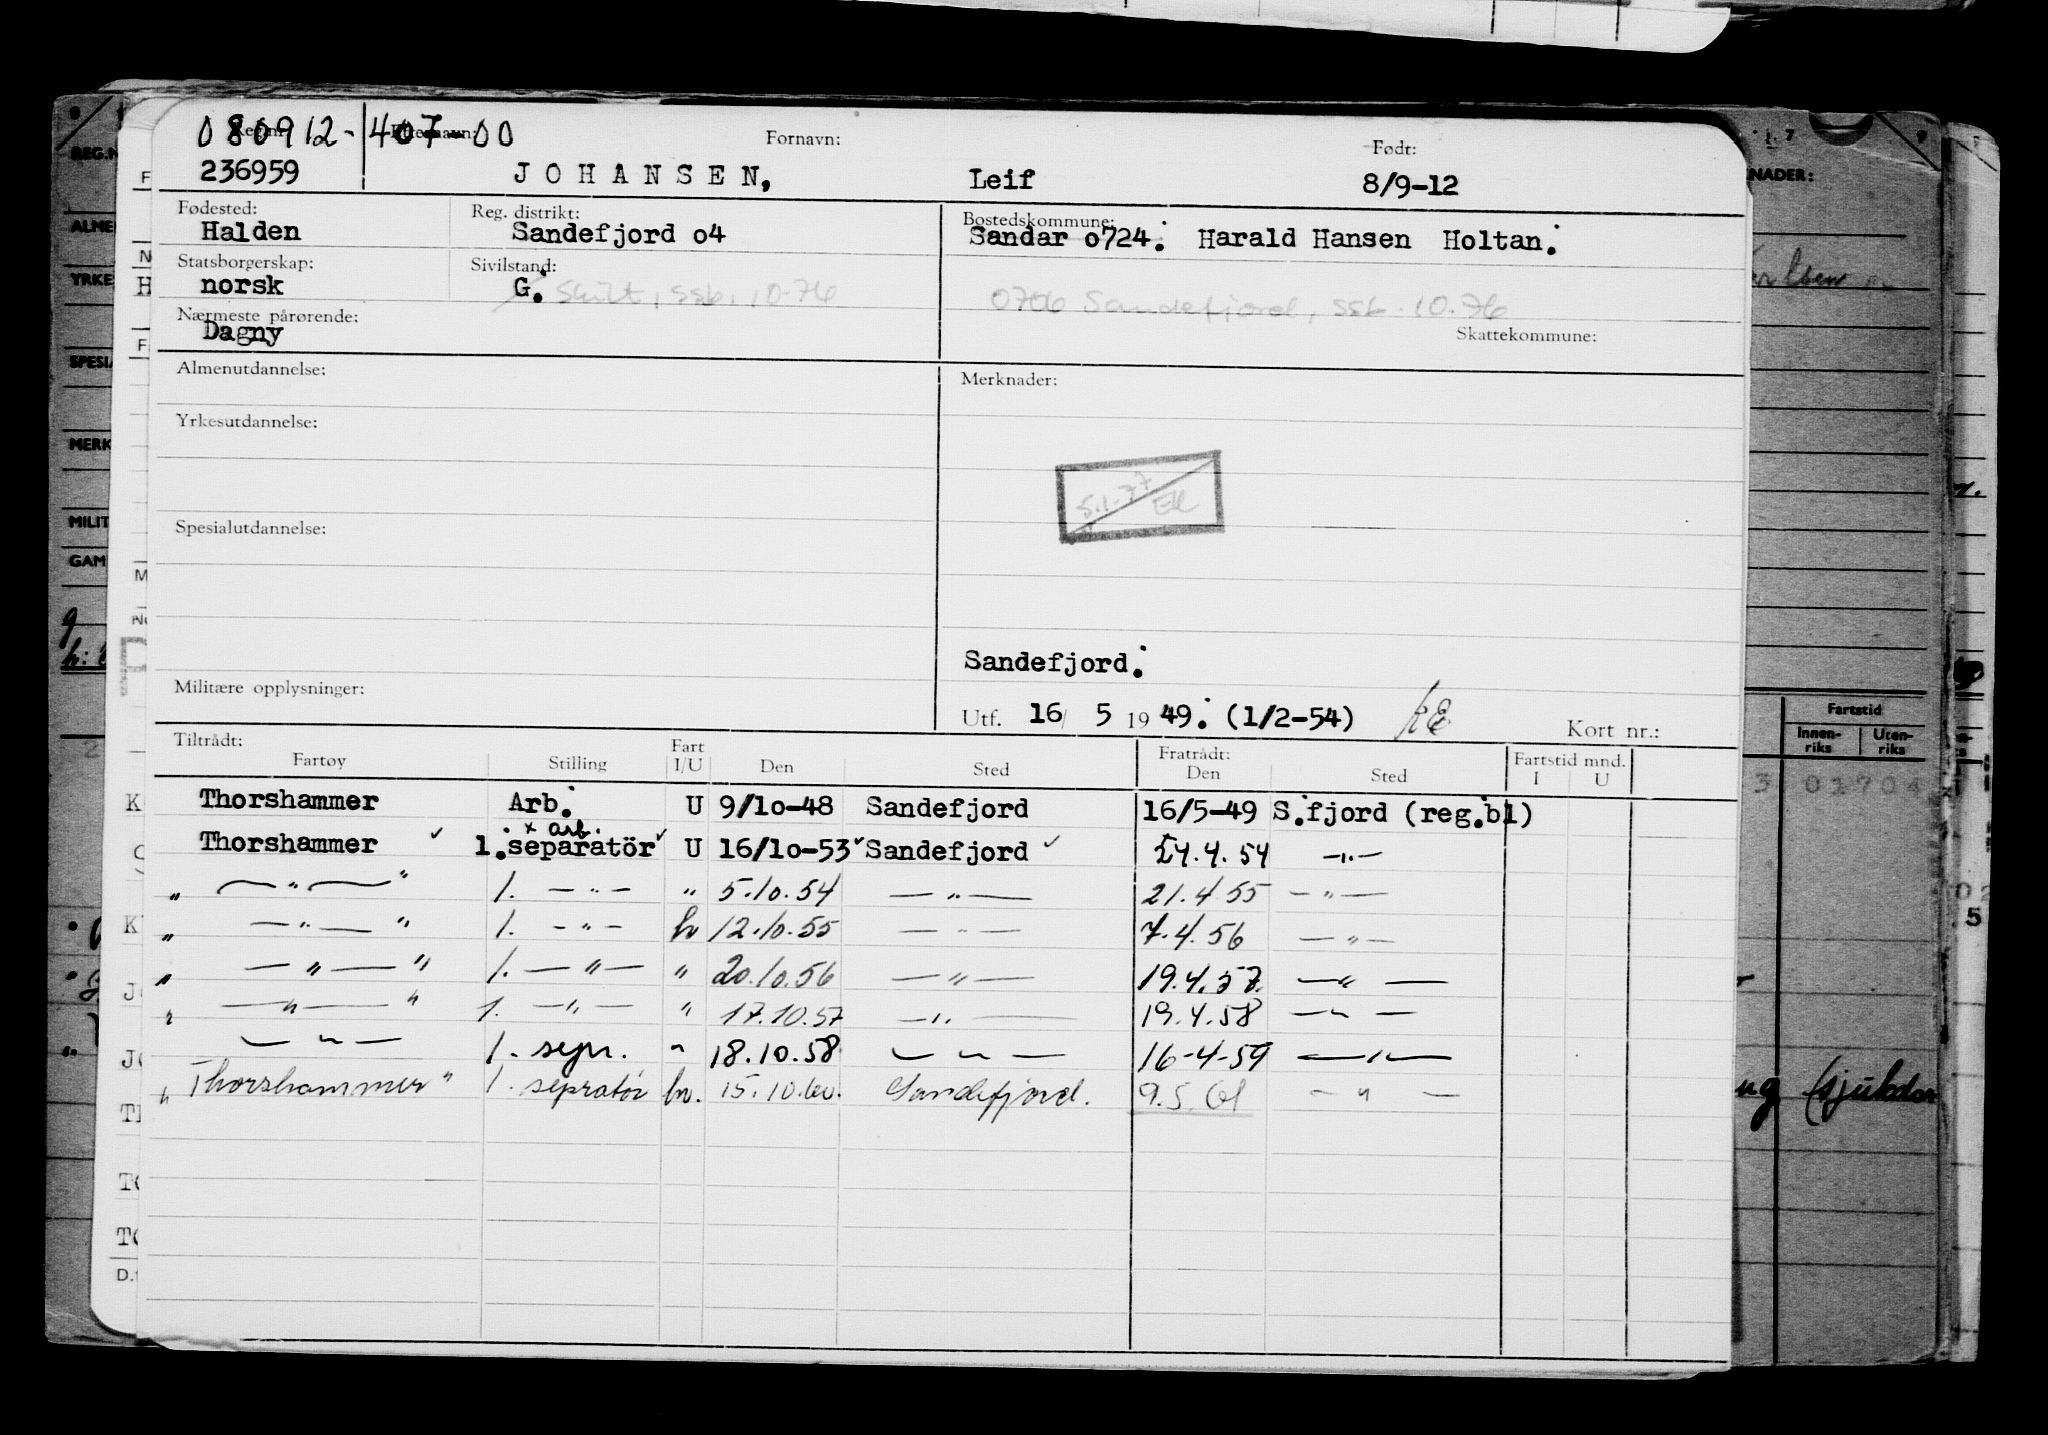 080912-407-00
Reg.nr. Etternavn: Fornavn: Født:
236959 JOHANSEN, Leif 8/9-12
Fødested: Reg. distrikt: Bostedskommune:
Halden Sandefjord o4 Sandar o724. Harald Hansen Holtan.
Statsborgerskap: Sivilstand:
norsk G. Skilt, ssb. 10-76 0706 Sandefjord, ssb. 10.76
Nærmeste pårørende: Skattekommune:
Dagny
Almenutdannelse: Merknader:
Yrkesutdannelse:
5.1-77 EK
Spesialutdannelse:
Sandefjord.
Militære opplysninger: Utf. 16/ 5 1949. (1/2-54) Kort nr.:
Tiltrådt: Fratrådt: Fartstid mnd.
Fartøy Stilling Fart I/U Den Sted Den Sted I U
Thorshammer Arb. U 9/10-48 Sandefjord 16/5-49 S.fjord (reg.bl)
x arb.
Thorshammer ✓ 1.separatör ✓ U 16/10-53 ✓ Sandefjord ✓ 24.4.54 —"—
" —"— " 1. —"— " 5.10.54 —"— 21.4.55 —"—
" —"— " 1. —"— hv 12.10.55 —"— 7.4.56 —"—
" —"— " 1. —"— " 20.10.56 —"— 19.4.57. —"—
" —"— " 1. —"— " 17.10.57 —"— 19.4.58 —"—
—"— 1. sepr. " 18.10.58 —"— 16-4-59 —"—
" Thorshammer " 1. sepratør hv. 15.10.60. Sandefjord. 9.5.61 —"—
REG.N
ALME
YRKE
SPESIA
MERK
MILIT
GAM
NADER:
Fartstid
Innen-riks Uten-riks
01704
ng (sjukdom